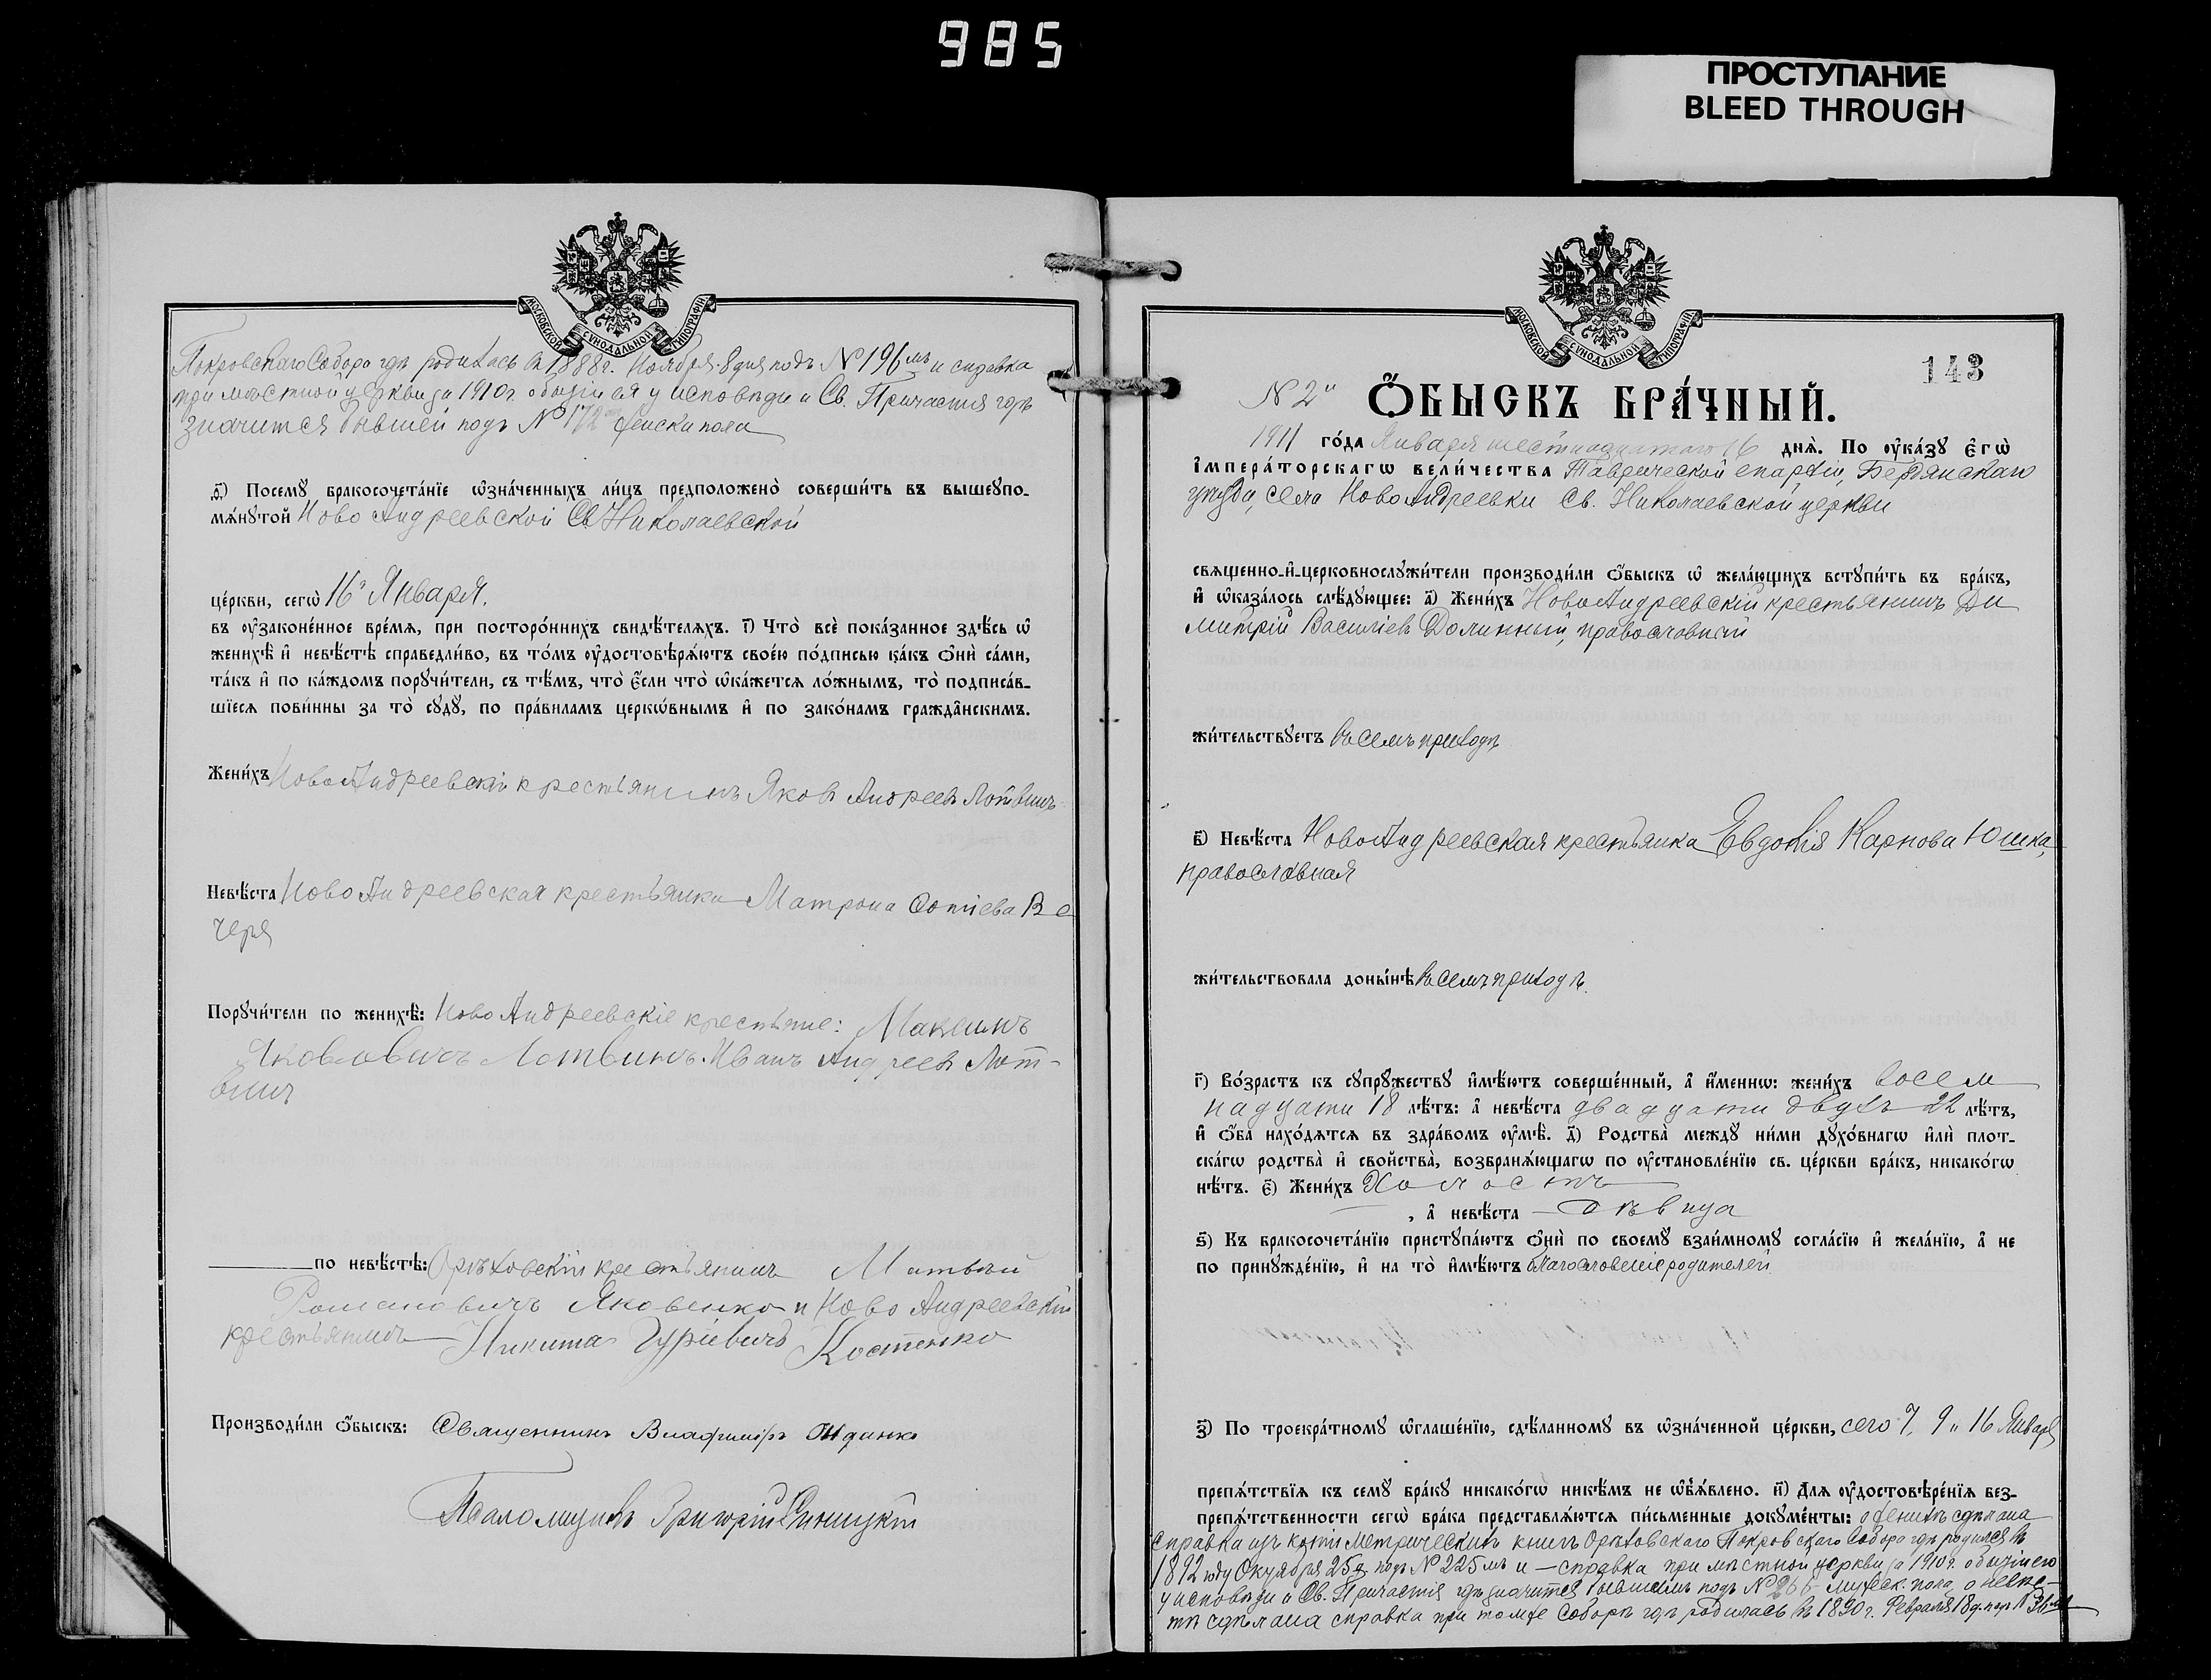 985
ПРОСТУПАНИЕ
BLEED THROUGH
МОСКОВСКОЙ СѴНОДАЛЬНОЙ ТИПОГРАФІИ
Покровскаго Собора гдѣ родилась въ 1888 г. Ноября 8 дня подъ № 196мъ и справка
при мѣстной церкви за 1910 г. о бытіи ея у исповѣди и Св. Причастія гдѣ
значится бывшей подъ № 172 женска пола
д҃) Посемꙋ бракосочета́нїе ѡ҆зна́ченныхъ ли́цъ предположено̀ соверши́ть въ вышеꙋпо-
мѧ́нꙋтой Ново Андреевской Св. Николаевской
це́ркви, сегѡ̀ 16го Января.
въ ᲂу҆законе́нное вре́мѧ, при посторо́ннихъ свидѣ́телѧхъ. і҃) Что̀ всѐ пока́занное здѣ́сь ѡ҆
женихѣ̀ и҆ невѣ́стѣ справедли́во, въ то́мъ ᲂу҆достовѣрѧ́ютъ свое́ю по́дписью ка́къ ѻ҆нѝ са́ми,
та́къ и҆ по ка́ждомъ порꙋчи́тели, съ тѣ́мъ, что̀ є҆́сли что̀ ѡ҆ка́жетсѧ ло́жнымъ, то̀ подписа́в-
шїесѧ пови́нны за то̀ сꙋдꙋ̀, по пра́виламъ церкѡ́внымъ и҆ по зако́намъ гражда̑нскимъ.
Жени́хъ Ново Андреевскій крестьянинъ Яковъ Андреевъ Лотвинъ
Невѣ́ста Ново Андреевская крестьянка Матрона Фотіева Ве
черя
Порꙋчи́тели по женихѣ̀: Ново Андреевскіе крестьяне: Максимъ
Яковлевичъ Лотвинъ. Иванъ Андреевъ Лот-
винъ
по невѣ́стѣ: Орѣховскій крестьянинъ Матвѣй
Романовичъ Яковенко и Ново Андреевскій
крестьянинъ Никита Гуріевичъ Костенко
Производи́ли ѻ҆́быскъ: Священникъ Владиміръ
Псаломщикъ Григорій
МОСКОВСКОЙ СѴНОДАЛЬНОЙ ТИПОГРАФІИ
143
№ 2й Ѻ҆́БЫСКЪ БРА́ЧНЫЙ.
1911 го́да Января шестнадцатаго 16 днѧ̀. По ᲂу҆ка́зꙋ є҆гѡ̀
і҆мпера́торскагѡ вели́чества Таврической епархіи, Бердянскаго
уѣзда, села Ново Андреевки Св. Николаевской церкви
свѧщенно-и҆-церковнослꙋжи́тели производи́ли ѻ҆́быскъ ѡ҆ жела́ющихъ встꙋпи́ть въ бра́къ,
и҆ ѡ҆каза́лось слѣ́дꙋющее: а҃) Жени́хъ Ново Андреевскій крестьянинъ Ди
митрій Василіевъ Долинный, православный
жи́тельствꙋетъ въ семъ приходѣ
в҃) Невѣ́ста Ново Андреевская крестьянка Евдокія Карпова Юшка,
православная
жи́тельствовала доны́нѣ въ семъ приходѣ.
г҃) Во́зрастъ къ сꙋпрꙋ́жествꙋ и҆мѣ́ютъ соверше́нный, а҆ и҆́меннѡ: жени́хъ восем
надцати 18 лѣ́тъ: а҆ невѣ́ста двадцати двухъ 22 лѣ́тъ,
и҆ ѻ҆́ба нахо́дѧтсѧ въ здра́вомъ ᲂу҆мѣ̀. д҃) Родства̀ междꙋ̀ ни́ми дꙋхо́внагѡ и҆лѝ плот-
ска́гѡ родства̀ и҆ сво́йства, возбранѧ́ющагѡ по ᲂу҆становле́нїю св. це́ркви бра́къ, никако́гѡ
нѣ́тъ. є҃) Жени́хъ Холостъ
, а҆ невѣ́ста дѣвица
ѕ҃) Къ бракосочета́нїю пристꙋпа́ютъ ѻ҆нѝ по своемꙋ̀ взаи́мномꙋ согла́сїю и҆ жела́нїю, а҆ не
по принꙋжде́нїю, и҆ на то̀ и҆мѣ́ютъ благословеніе родителей
з҃) По троекра́тномꙋ ѡ҆глаше́нїю, сдѣ́ланномꙋ въ ѡ҆зна́ченной це́ркви, сего 7, 9 и 16 Января
препѧ́тствїѧ къ семꙋ̀ бра́кꙋ никако́гѡ никѣ́мъ не ѡ҆б̾ѧ́влено. и҃) Длѧ ᲂу҆достовѣре́нїѧ без-
препѧ́тственности сегѡ̀ бра́ка представлѧ́ютсѧ пи́сьменные докꙋме́нты: о женихѣ сдѣлана
справка изъ копіи метрическихъ книгъ Орѣховскаго Покровскаго Собора гдѣ родился въ
1892 году Октября 25 д. подъ № 225мъ и — справка при мѣстной церкви за 1910 г. о бытіи его
у исповѣди и Св. Причастія гдѣ значится бывшимъ подъ № 266 мужеск. пола, о невѣс-
тѣ сдѣлана справка при томже Соборѣ гдѣ родилась въ 1890 г. Февраля 18 д. подъ №